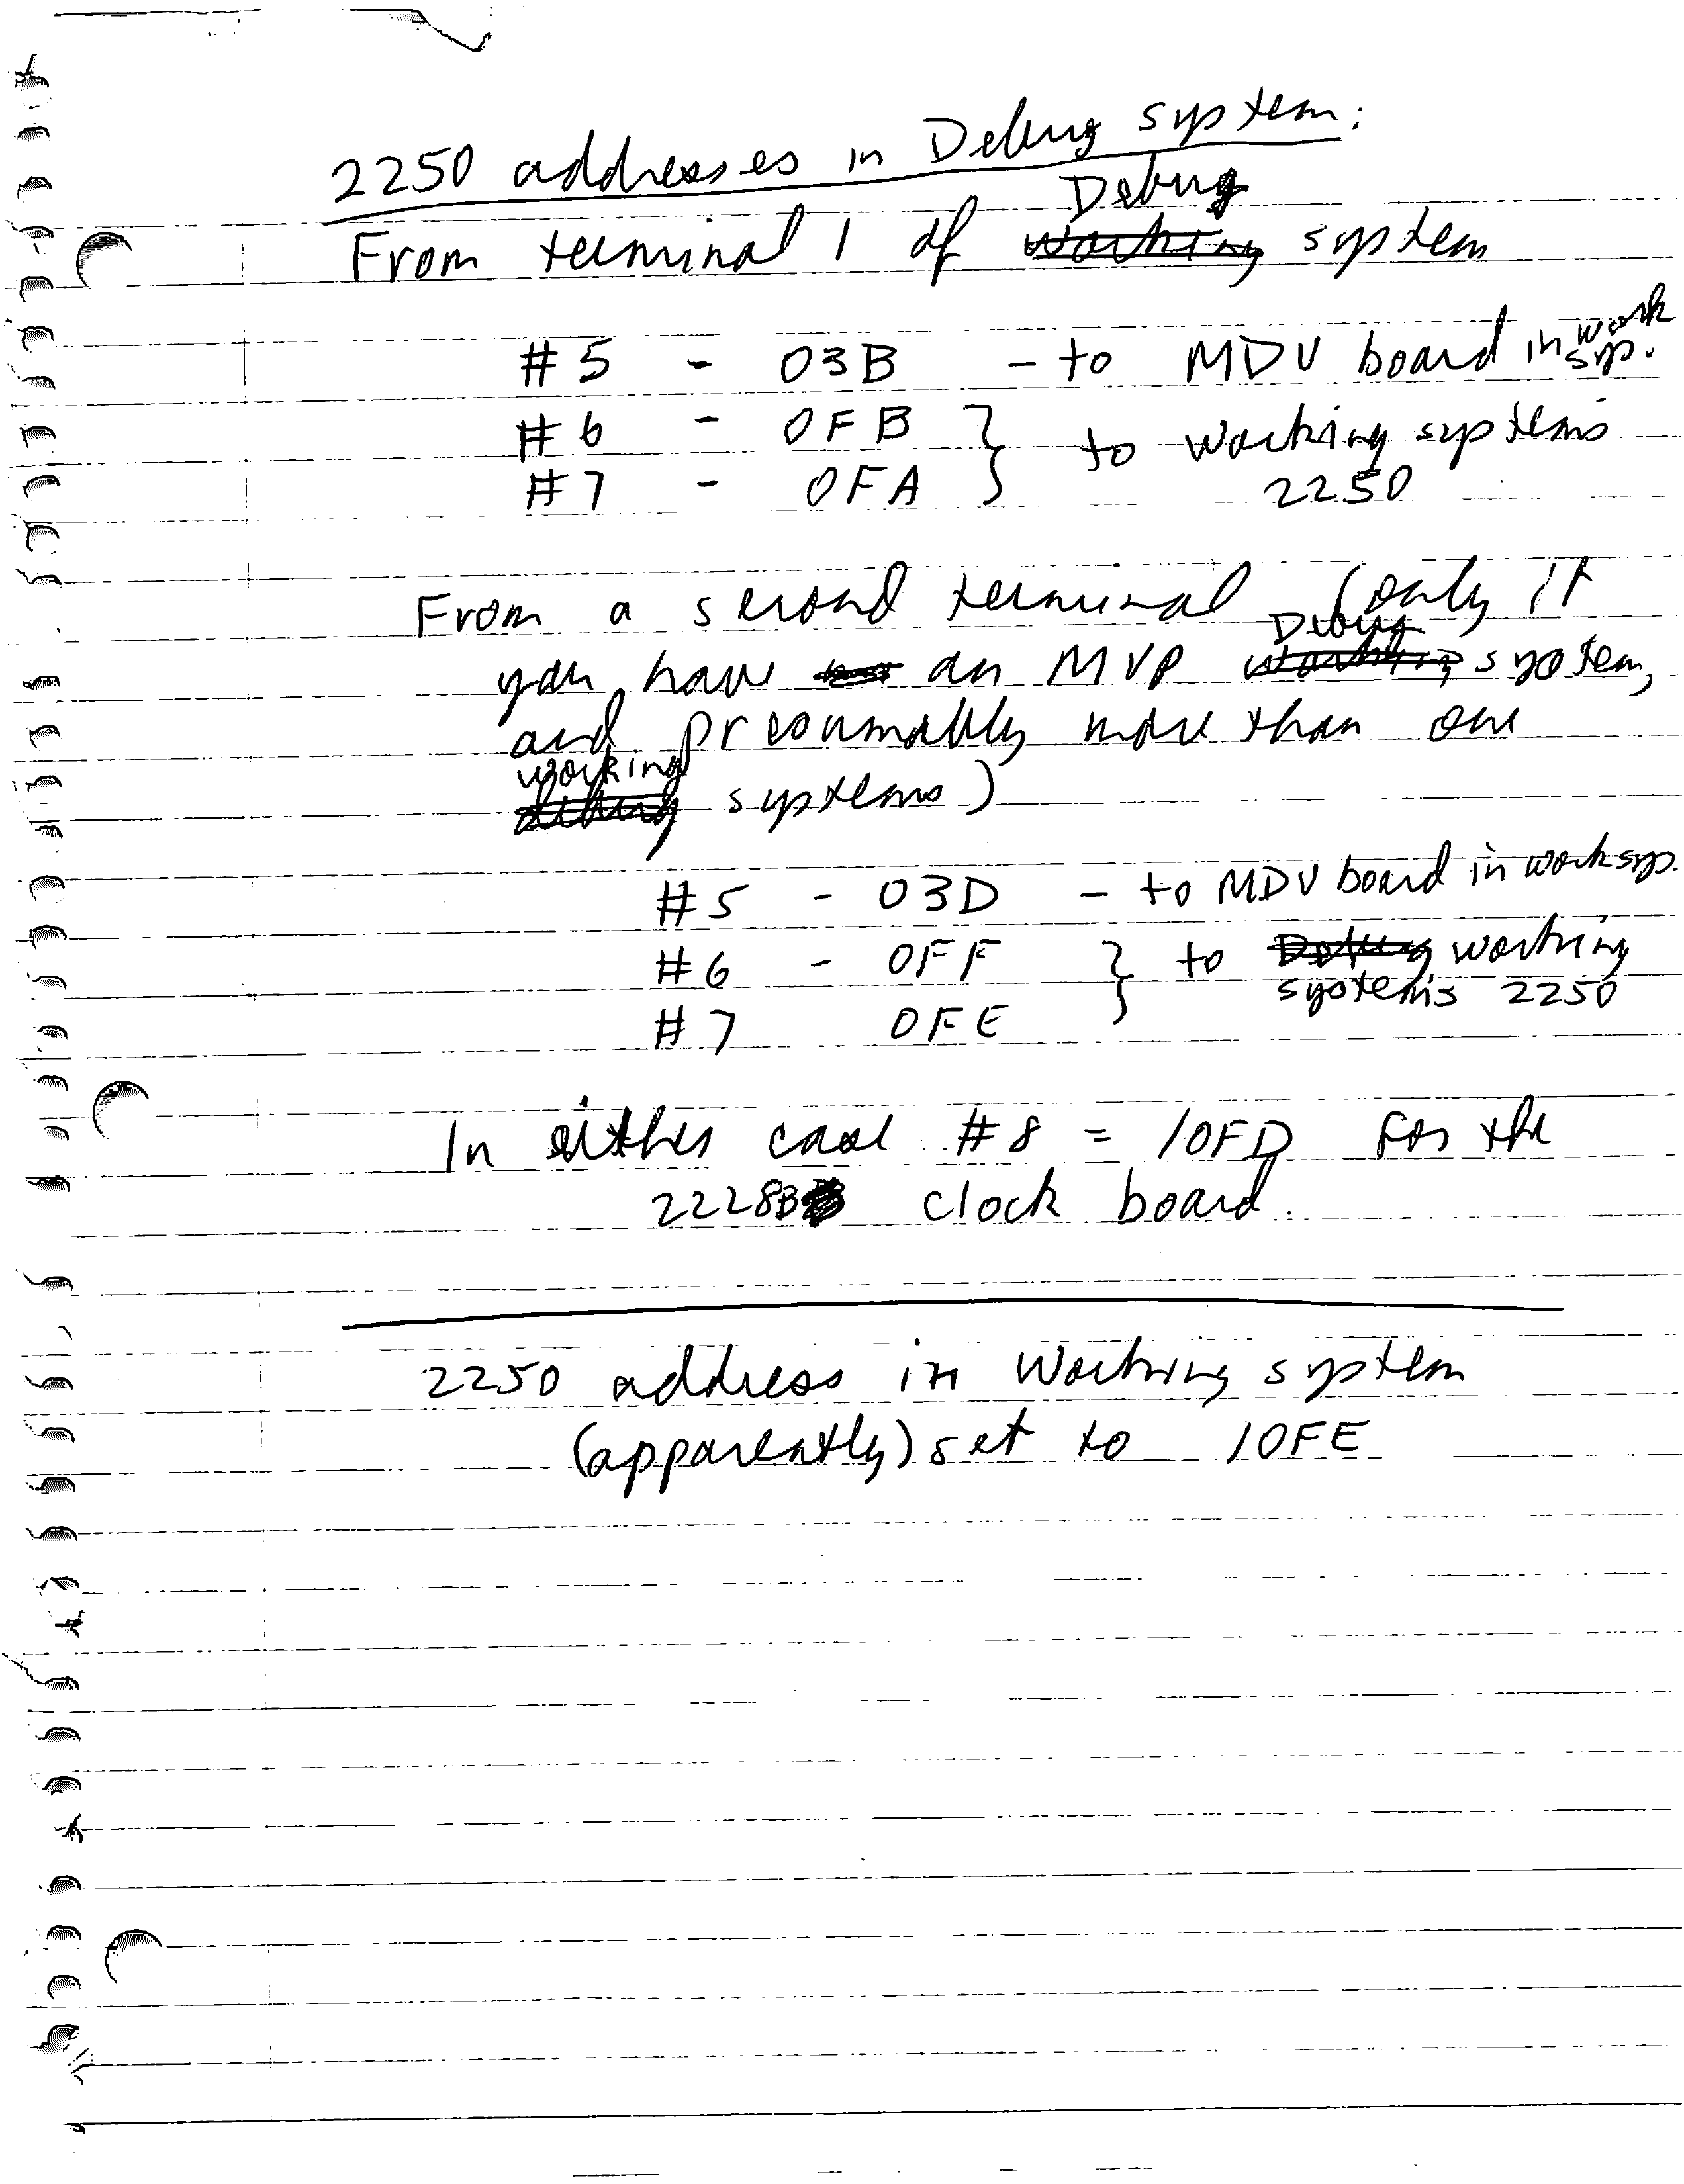 2250 addresses in Debug system:
Debug
From terminal 1 of working system
#5 - 03B - to MDU board in work sys.
#6 - 0FB } to working systems
#7 - 0FA } 2250
From a second terminal (only if
Debug
you have an MVP working system,
and presumably more than one
working
debug systems)
#5 - 03D - to MDU board in work sys.
#6 - 0FF } to Debug working
#7 0FE } system's 2250
In either case #8 = 10FD for the
2228B clock board.
2250 address in working system
(apparently) set to 10FE